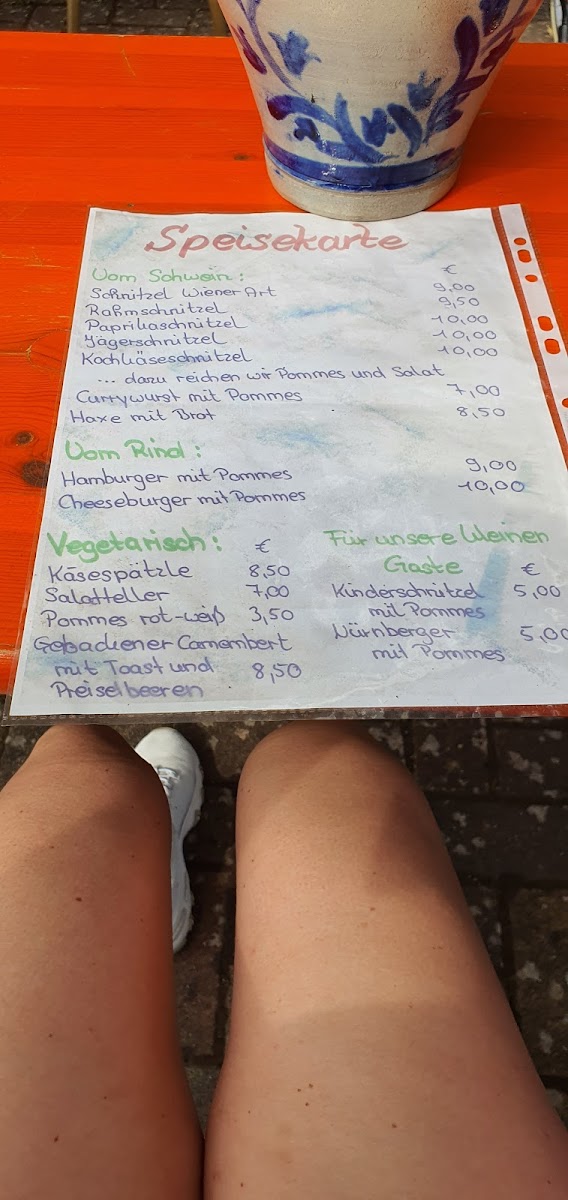 Speisekarte
Vom Schwein: €
Schnitzel Wiener Art 9,00
Rahmschnitzel 9,50
Paprikaschnitzel 10,00
Jägerschnitzel 10,00
Kochkäseschnitzel 10,00
... dazu reichen wir Pommes und Salat
Currywurst mit Pommes 7,00
Haxe mit Brot 8,50
Vom Rind:
Hamburger mit Pommes 9,00
Cheeseburger mit Pommes 10,00
Vegetarisch: €
Käsespätzle 8,50
Salatteller 7,00
Pommes rot-weiß 3,50
Gebackener Camembert
mit Toast und 8,50
Preiselbeeren
Für unsere kleinen
Gäste €
Kinderschnitzel 5,00
mit Pommes
Nürnberger 5,00
mit Pommes